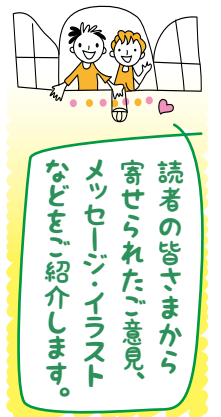 読者の皆さまから
寄せられたご意見、
メッセージ・イラスト
などをご紹介します。